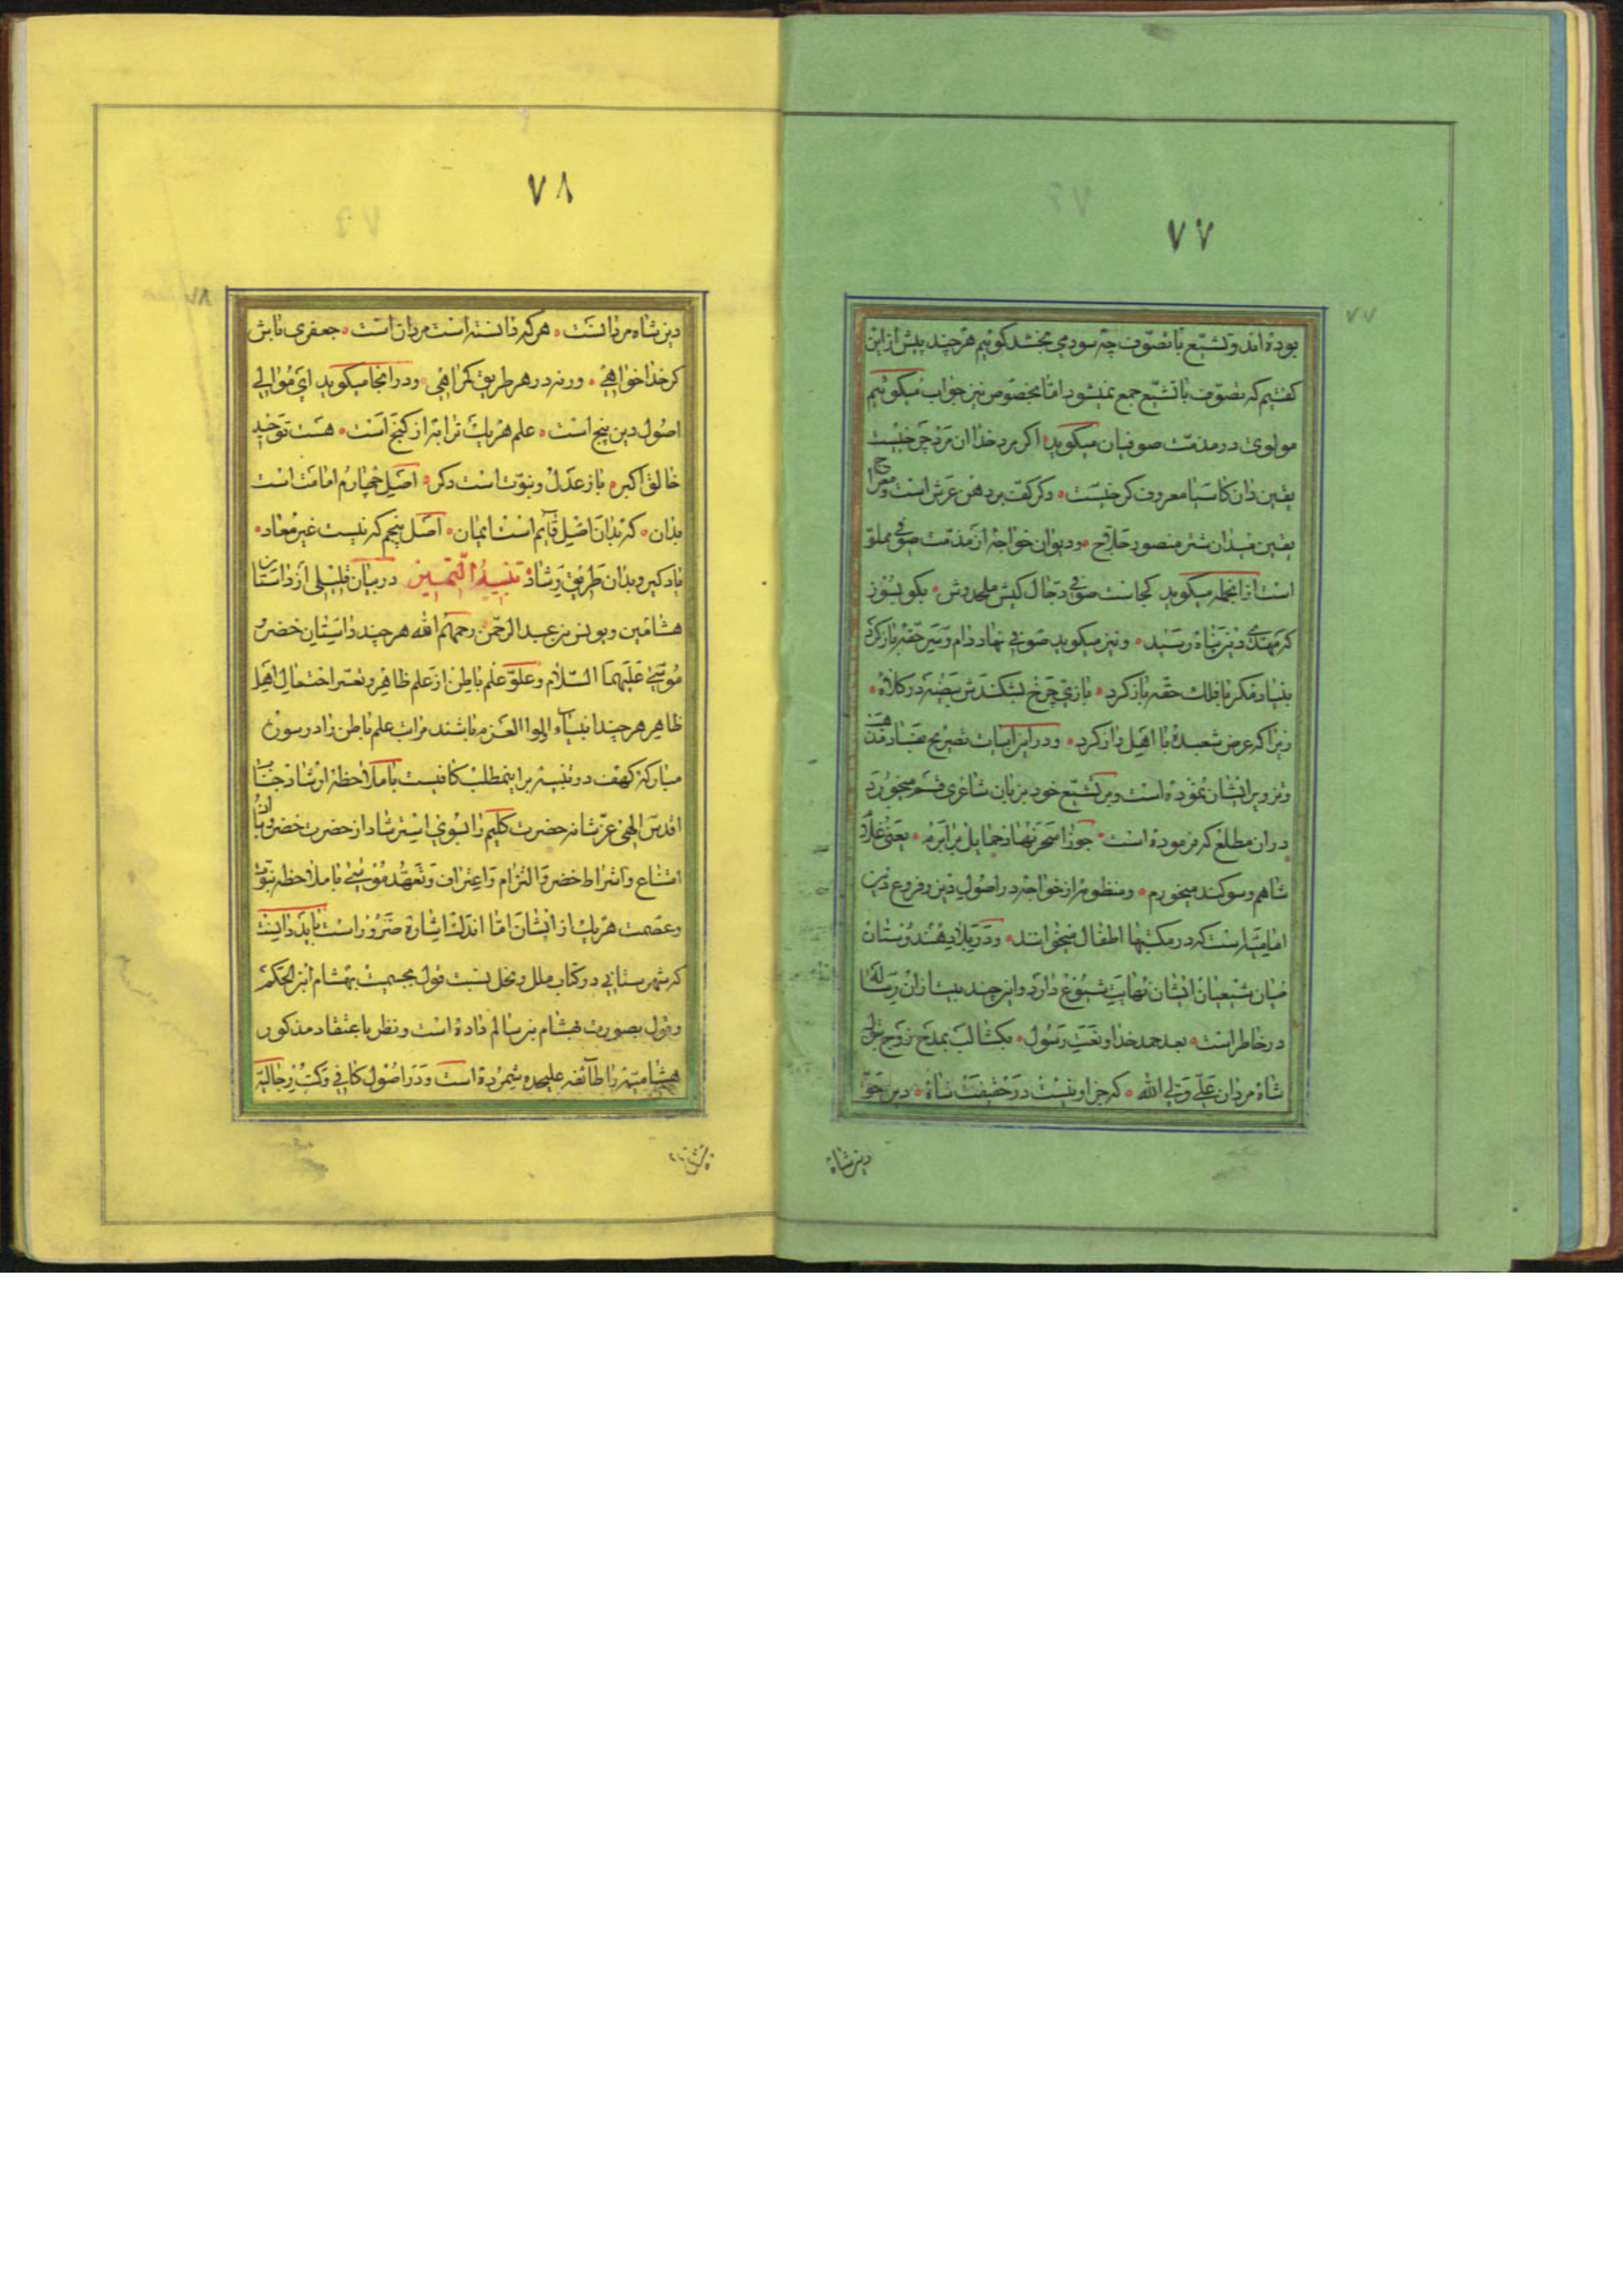 ۷۷
۷۷
بوده اند و تشیع با تصوف چه سودمی بخشد کوئیم هرچند پیش از این
کفتیم که تصوف با تشیع جمع نمیشود اما بخصوص نیز جواب میکوئیم
مولوی در مذمت صوفیان میکوید اکر برد خدا ان مرد چرخیست
یقین دان کاسیا معروف کرخیست ٠ وکر کف بر دهن عرش است و معراج
یقین میدان شتر منصور حلاج ٠ ودیوان خواجه از مذمت صوفی مملو
است از انجمله میکوید کجاست صوفی دجال کیش ملحد وش ٠ بکو بسوز
که مهدی دین پناه رسید ٠ و نیز میکوید صوفی نهاد دام و سر حقه باز کرد
بنیاد مکر با فلک حقه باز کرد ٠ بازی چرخ بشکندش بیضه در کلاه ٠
زیرا که عرض شعبده با اهل راز کرد ٠ ودر این ابیات تصریح بفساد مذهب
وتزویر ایشان نموده است و بر تشیع خود بزبان شاعری قسم میخورد
در ان مطلع که فرموده است ٠ جوزا سحر نهاد حمایل برابرم ٠ یعنی غلام
شاهم و سوکند میخورم ٠ ومنظومه از خواجه در اصول دین و فروع دین
امامیه است که در مکتبها اطفال میخوانند ٠ ودر بلاد هند وستان
میان شیعیان ایشان نهایت شیوع دارد و این چند بیت از ان رساله
در خاطر است ٠ بعد حمد خدا و نعت رسول ٠ بکشا لب بمدح زوج بتول
شاه مردان علی ولی الله ٠ که جز او نیست در حقیقت شاه ٠ دین حق
دین شاه
۷۸
دین شاه مردانست ٠ هر که دانسته است مردان است ٠ جعفری باش
کر خدا خواهی ٠ ورنه در هر طریق کمراهی ٠ ودر انجا میکوید ای موالی
اصول دین پنج است ٠ علم هر یک ترا به از کنج است ٠ هست توحید
خالق اکبر ٠ باز عدل و نبوت است دکر ٠ اصل چهارم امامت است
بدان ٠ که بدان اصل قایم است ایمان ٠ اصل پنجم که نیست غیر معاد ٠
یاد کیر و بدان طریق رشاد تنبیه التمیین در بیان قلیلی از داستان
هشامین و یونس بن عبد الرحمن رحمهم الله هر چند داستان خضر و
موسی علیهما السلام و علو علم باطن از علم ظاهر و تعسر احتمال اهل
ظاهر هر چند انبیاء اولوا العزم باشند مراتب علم باطن را در سوره
مبارکه کهف در تنبیه بر اینمطلب کافیست با ملاحظه ارشاد جناب
اقدس الهی عز شانه حضرت کلیم را بسوی استرشاد از حضرت خضر و بیان
امتناع و اشتراط خضر و التزام و اعتراف و تعهد موسی با ملاحظه نبوت
وعصمت هر یک از ایشان اما اندک اشاره ضرور است باید دانست
که شهرستانی در کتاب ملل و نحل نسبت قول بجسمیت بهشام ابن الحکم
وقول بصورت بهشام بن سالم داده است و نظر باعتقاد مذکور
هشامیه را طائفه علیحده شمرده است و در اصول کافی و کتب رجالیه